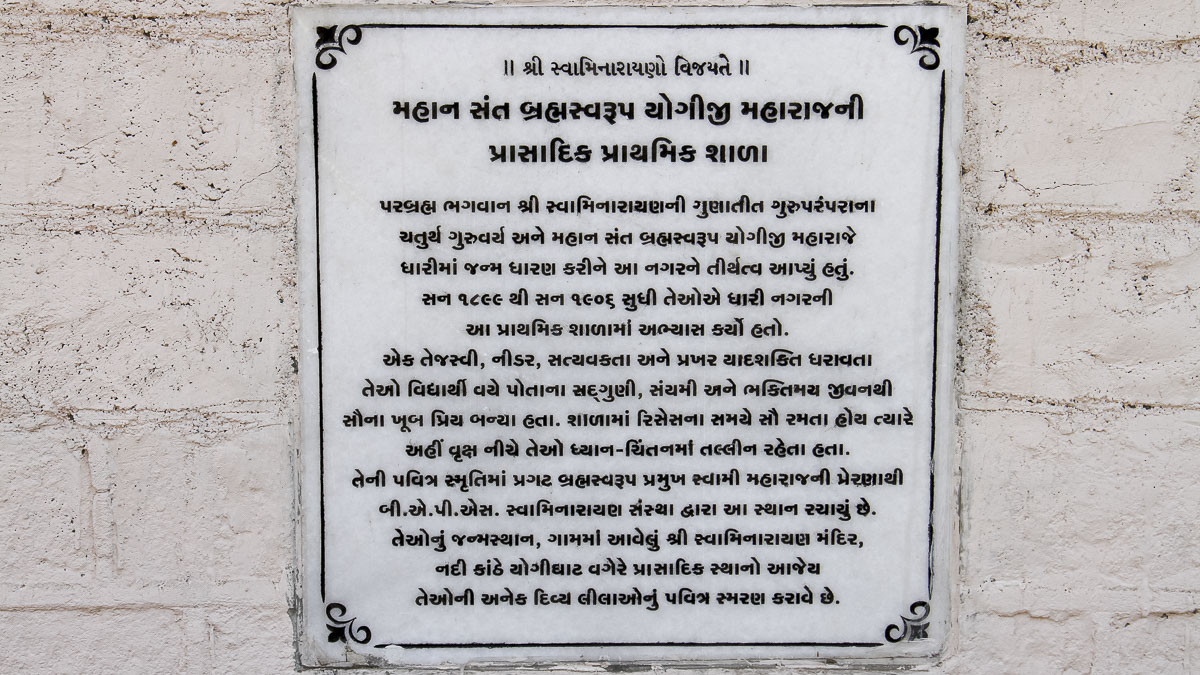 ॥ શ્રી સ્વામિનારાયણો વિજયતે ॥
મહાન સંત બ્રહ્મસ્વરૂપ યોગીજી મહારાજની
પ્રાસાદિક પ્રાથમિક શાળા
પરબ્રહ્મ ભગવાન શ્રી સ્વામિનારાયણની ગુણાતીત ગુરુપરંપરાના
ચતુર્થ ગુરુવર્ય અને મહાન સંત બ્રહ્મસ્વરૂપ યોગીજી મહારાજે
ધારીમાં જન્મ ધારણ કરીને આ નગરને તીર્થત્વ આપ્યું હતું.
સન ૧૮૯૯ થી સન ૧૯૦૬ સુધી તેઓએ ધારી નગરની
આ પ્રાથમિક શાળામાં અભ્યાસ કર્યો હતો.
એક તેજસ્વી, નીડર, સત્યવકતા અને પ્રખર યાદશકિત ધરાવતા
તેઓ વિદ્યાર્થી વયે પોતાના સદ્‌ગુણી, સંયમી અને ભક્તિમય જીવનથી
સૌના ખૂબ પ્રિય બન્યા હતા. શાળામાં રિસેસના સમયે સૌ રમતા હોય ત્યારે
અહીં વૃક્ષ નીચે તેઓ ધ્યાન-ચિંતનમાં તલ્લીન રહેતા હતા.
તેની પવિત્ર સ્મૃતિમાં પ્રગટ બ્રહ્મસ્વરૂપ પ્રમુખ સ્વામી મહારાજની પ્રેરણાથી
બી.એ.પી.એસ. સ્વામિનારાયણ સંસ્થા દ્વારા આ સ્થાન રચાયું છે.
તેઓનું જન્મસ્થાન, ગામમાં આવેલું શ્રી સ્વામિનારાયણ મંદિર,
નદી કાંઠે યોગીઘાટ વગેરે પ્રાસાદિક સ્થાનો આજેય
તેઓની અનેક દિવ્ય લીલાઓનું પવિત્ર સ્મરણ કરાવે છે.